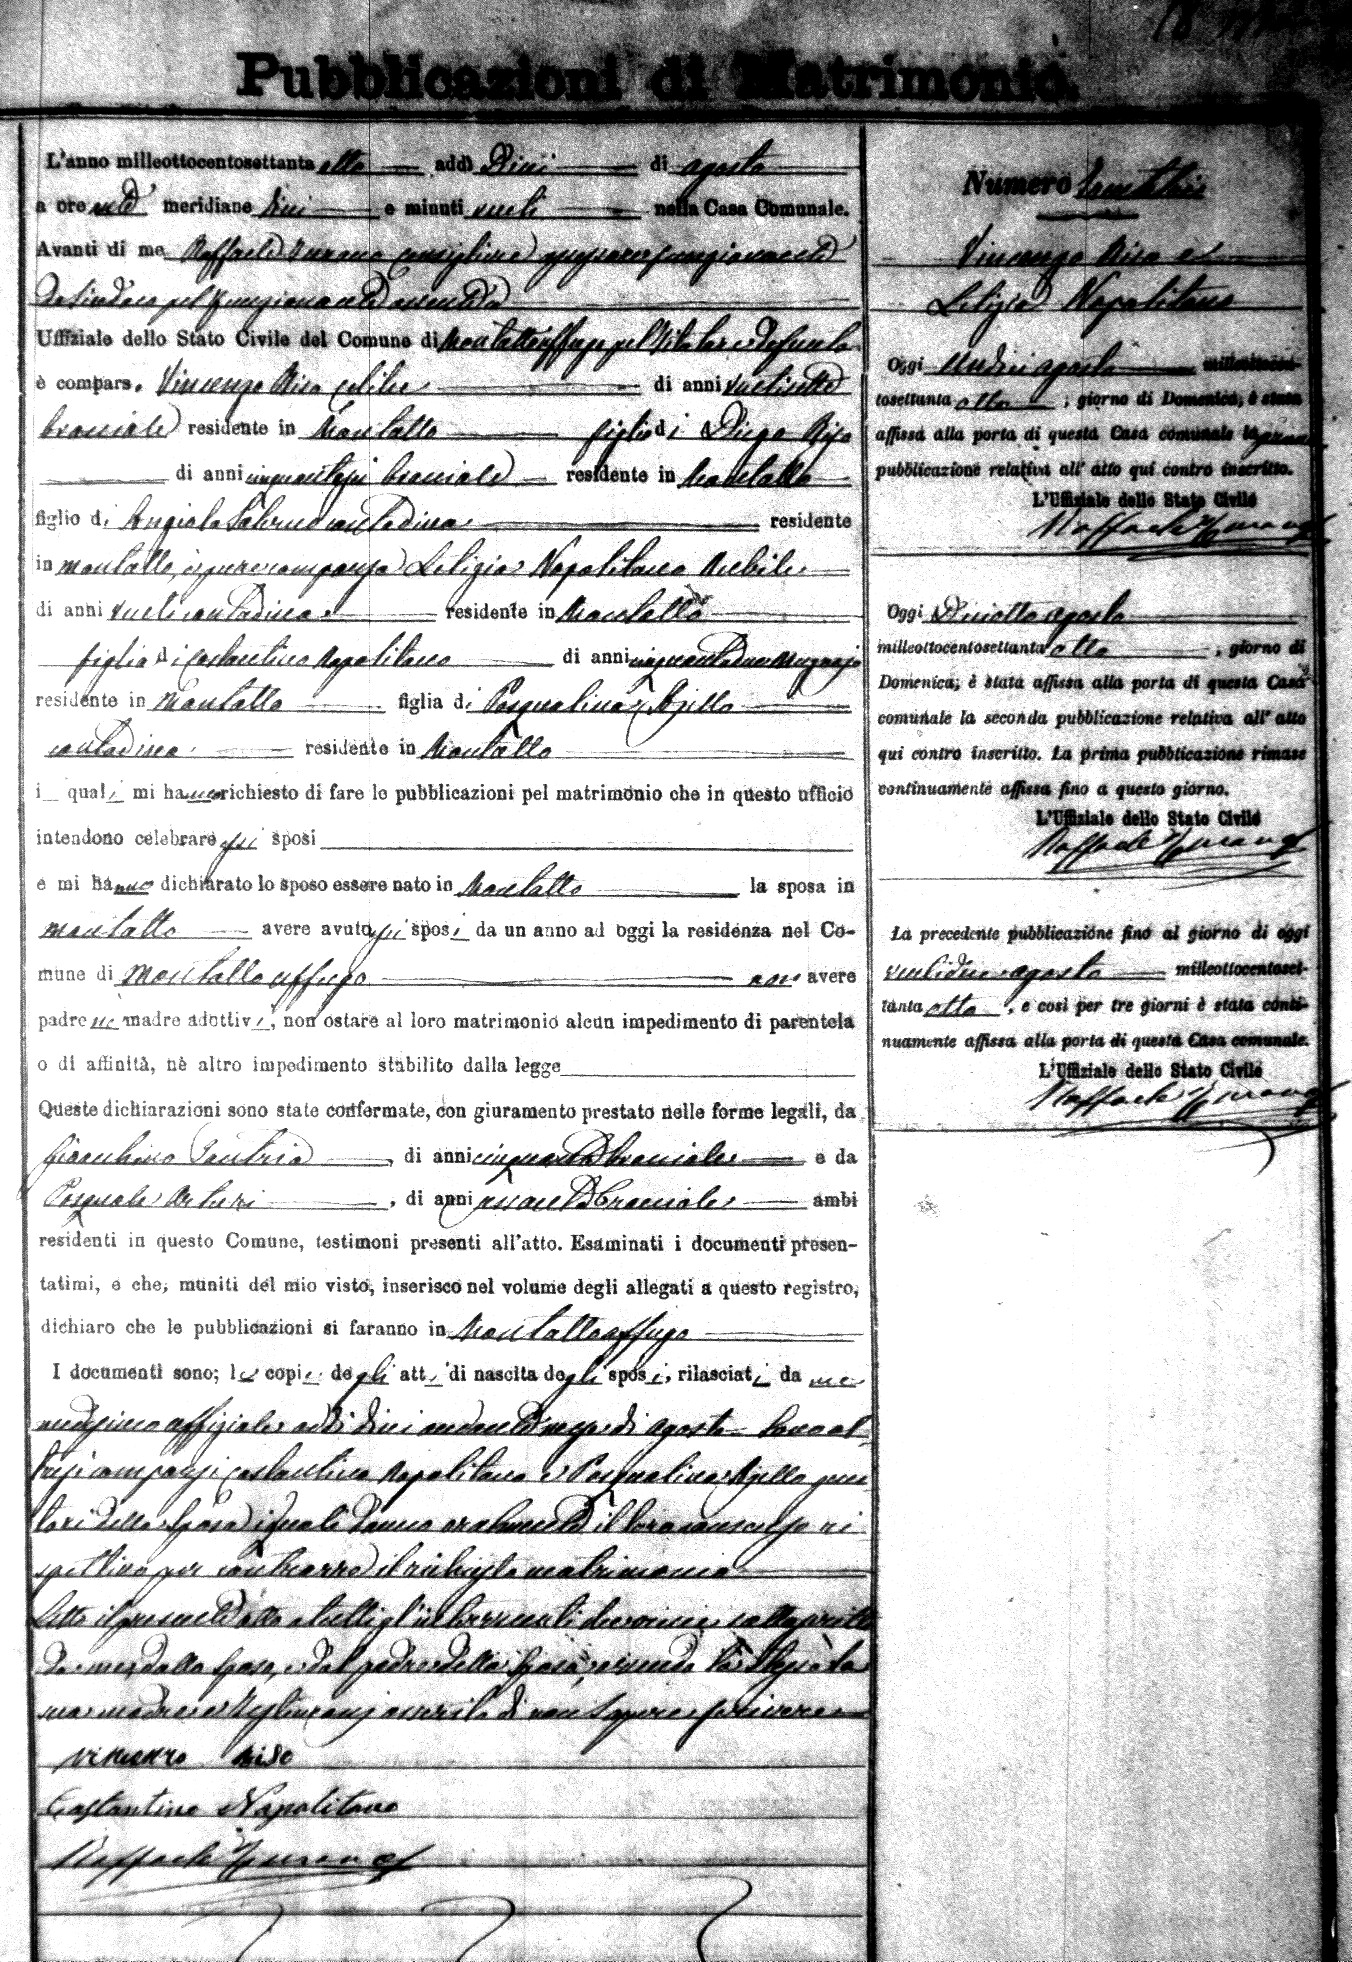 Pubblicazioni di Matrimonio.
L'anno milleottocentosettanta otto addì Dieci di agosto
a ore anti meridiane dieci e minuti venti nella Casa Comunale.
Avanti di me Raffaele consigliere funzionante
da Sindaco
Uffiziale dello Stato Civile del Comune di Montaltouffugo pel titolare
è compars. Vincenzo Riso celibe di anni ventisette
bracciale residente in Montalto figlio di Diego Riso
di anni bracciale residente in Montalto
figlio di Angiola contadina residente
in Montalto, è pure comparsa Letizia Napolitano nubile
di anni venti contadina residente in Montalto
figlia di Costantino Napolitano di anni cinquantadue
residente in Montalto figlia di Pasqualina Ajello
contadina residente in Montalto
i quali mi hanno richiesto di fare le pubblicazioni pel matrimonio che in questo ufficio
intendono celebrare essi sposi
e mi hanno dichiarato lo sposo essere nato in Montalto la sposa in
Montalto avere avuto essi sposi da un anno ad oggi la residenza nel Co-
mune di Montalto uffugo non avere
padre nè madre adottivi, non ostare al loro matrimonio alcun impedimento di parentela
o di affinità, nè altro impedimento stabilito dalla legge
Queste dichiarazioni sono state confermate, con giuramento prestato nelle forme legali, da
, di anni cinquanta bracciale e da
Pasquale Arturi, di anni bracciale ambi
residenti in questo Comune, testimoni presenti all'atto. Esaminati i documenti presen-
tatimi, e che, muniti del mio visto, inserisco nel volume degli allegati a questo registro,
dichiaro che le pubblicazioni si faranno in Montaltouffugo
I documenti sono; le copie degli atti di nascita degli sposi, rilasciati da me
medesimo uffiziale addì dieci andante mese di agosto Sono al-
tresì comparsi Costantino Napolitano e Pasqualina Ajello geni-
tori della sposa i quali danno oralmente il loro consenso ri-
spettivo per contrarre il richiesto matrimonio
Letto il presente atto a tutti gl'intervenuti sottoscritto
da me, dallo sposo, e dal padre della sposa, avendo la sposa la
madre e testimoni asserito di non sapere scrivere
vincenzo riso
Costantino Napolitano
Raffaele
Numero
Vincenzo Riso e
Letizia Napolitano
Oggi undici agosto milleottocen-
tosettanta otto, giorno di Domenica, è stata
affissa alla porta di questa Casa comunale la prima
pubblicazione relativa all'atto qui contro inscritto.
L'Uffiziale dello Stato Civile
Raffaele
Oggi Dieciotto agosto
milleottocentosettanta otto, giorno di
Domenica; è stata affissa alla porta di questa Casa
comunale la seconda pubblicazione relativa all'atto
qui contro inscritto. La prima pubblicazione rimase
continuamente affissa fino a questo giorno.
L'Uffiziale dello Stato Civile
Raffaele
La precedente pubblicazione fino al giorno di oggi
ventidue agosto milleottocentoset-
tanta otto, e così per tre giorni è stata conti-
nuamente affissa alla porta di questa Casa comunale.
L'Uffiziale dello Stato Civile
Raffaele